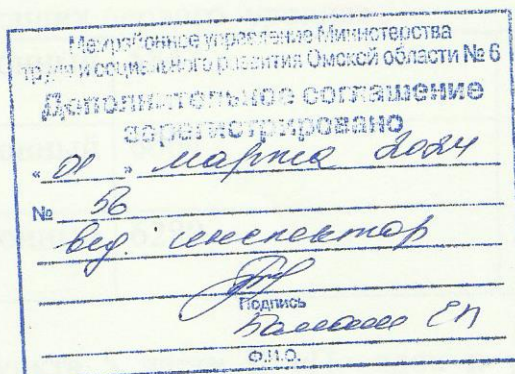 Межрайонное управление Министерства
труда и социального развития Омской области № 6
Дополнительное соглашение
зарегистрировано
« 01 » марта 2024
№ 56
вед. инспектор
Подпись
ЕП
Ф.И.О.